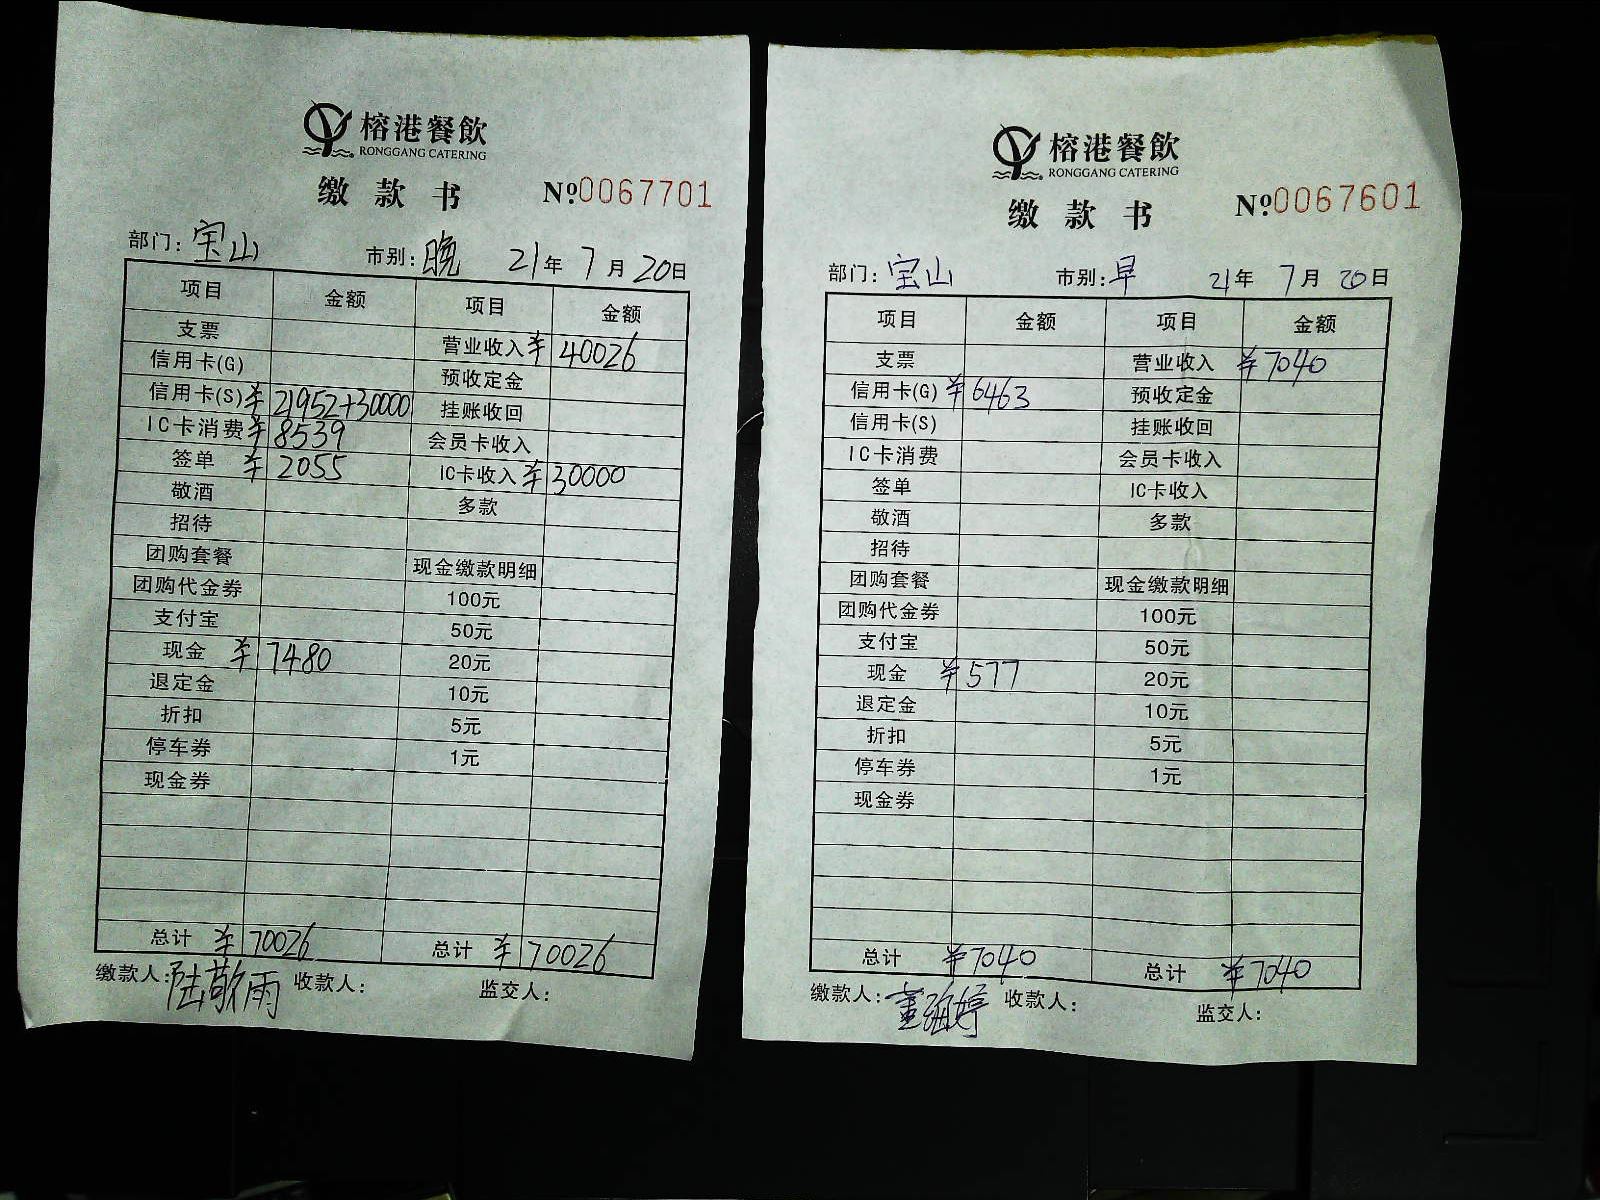 榕港餐飲
RONGGANG CATERING
缴款书 №0067701
部门: 宝山 市别: 晚 21年7月20日
项目 金额 项目 金额
支票 营业收入 ¥40026
信用卡(G) 预收定金
信用卡(S) ¥21952+30000 挂账收回
IC卡消费 ¥8539 会员卡收入
签单 ¥2055 IC卡收入 ¥30000
敬酒 多款
招待
团购套餐 现金缴款明细
团购代金券 100元
支付宝 50元
现金 ¥7480 20元
退定金 10元
折扣 5元
停车券 1元
现金券
总计 ¥70026 总计 ¥70026
缴款人: 陆敬雨 收款人: 监交人:
榕港餐飲
RONGGANG CATERING
缴款书 №0067601
部门: 宝山 市别: 早 21年7月20日
项目 金额 项目 金额
支票 营业收入 ¥7040
信用卡(G) ¥6463 预收定金
信用卡(S) 挂账收回
IC卡消费 会员卡收入
签单 IC卡收入
敬酒 多款
招待
团购套餐 现金缴款明细
团购代金券 100元
支付宝 50元
现金 ¥577 20元
退定金 10元
折扣 5元
停车券 1元
现金券
总计 ¥7040 总计 ¥7040
缴款人: 收款人: 监交人: